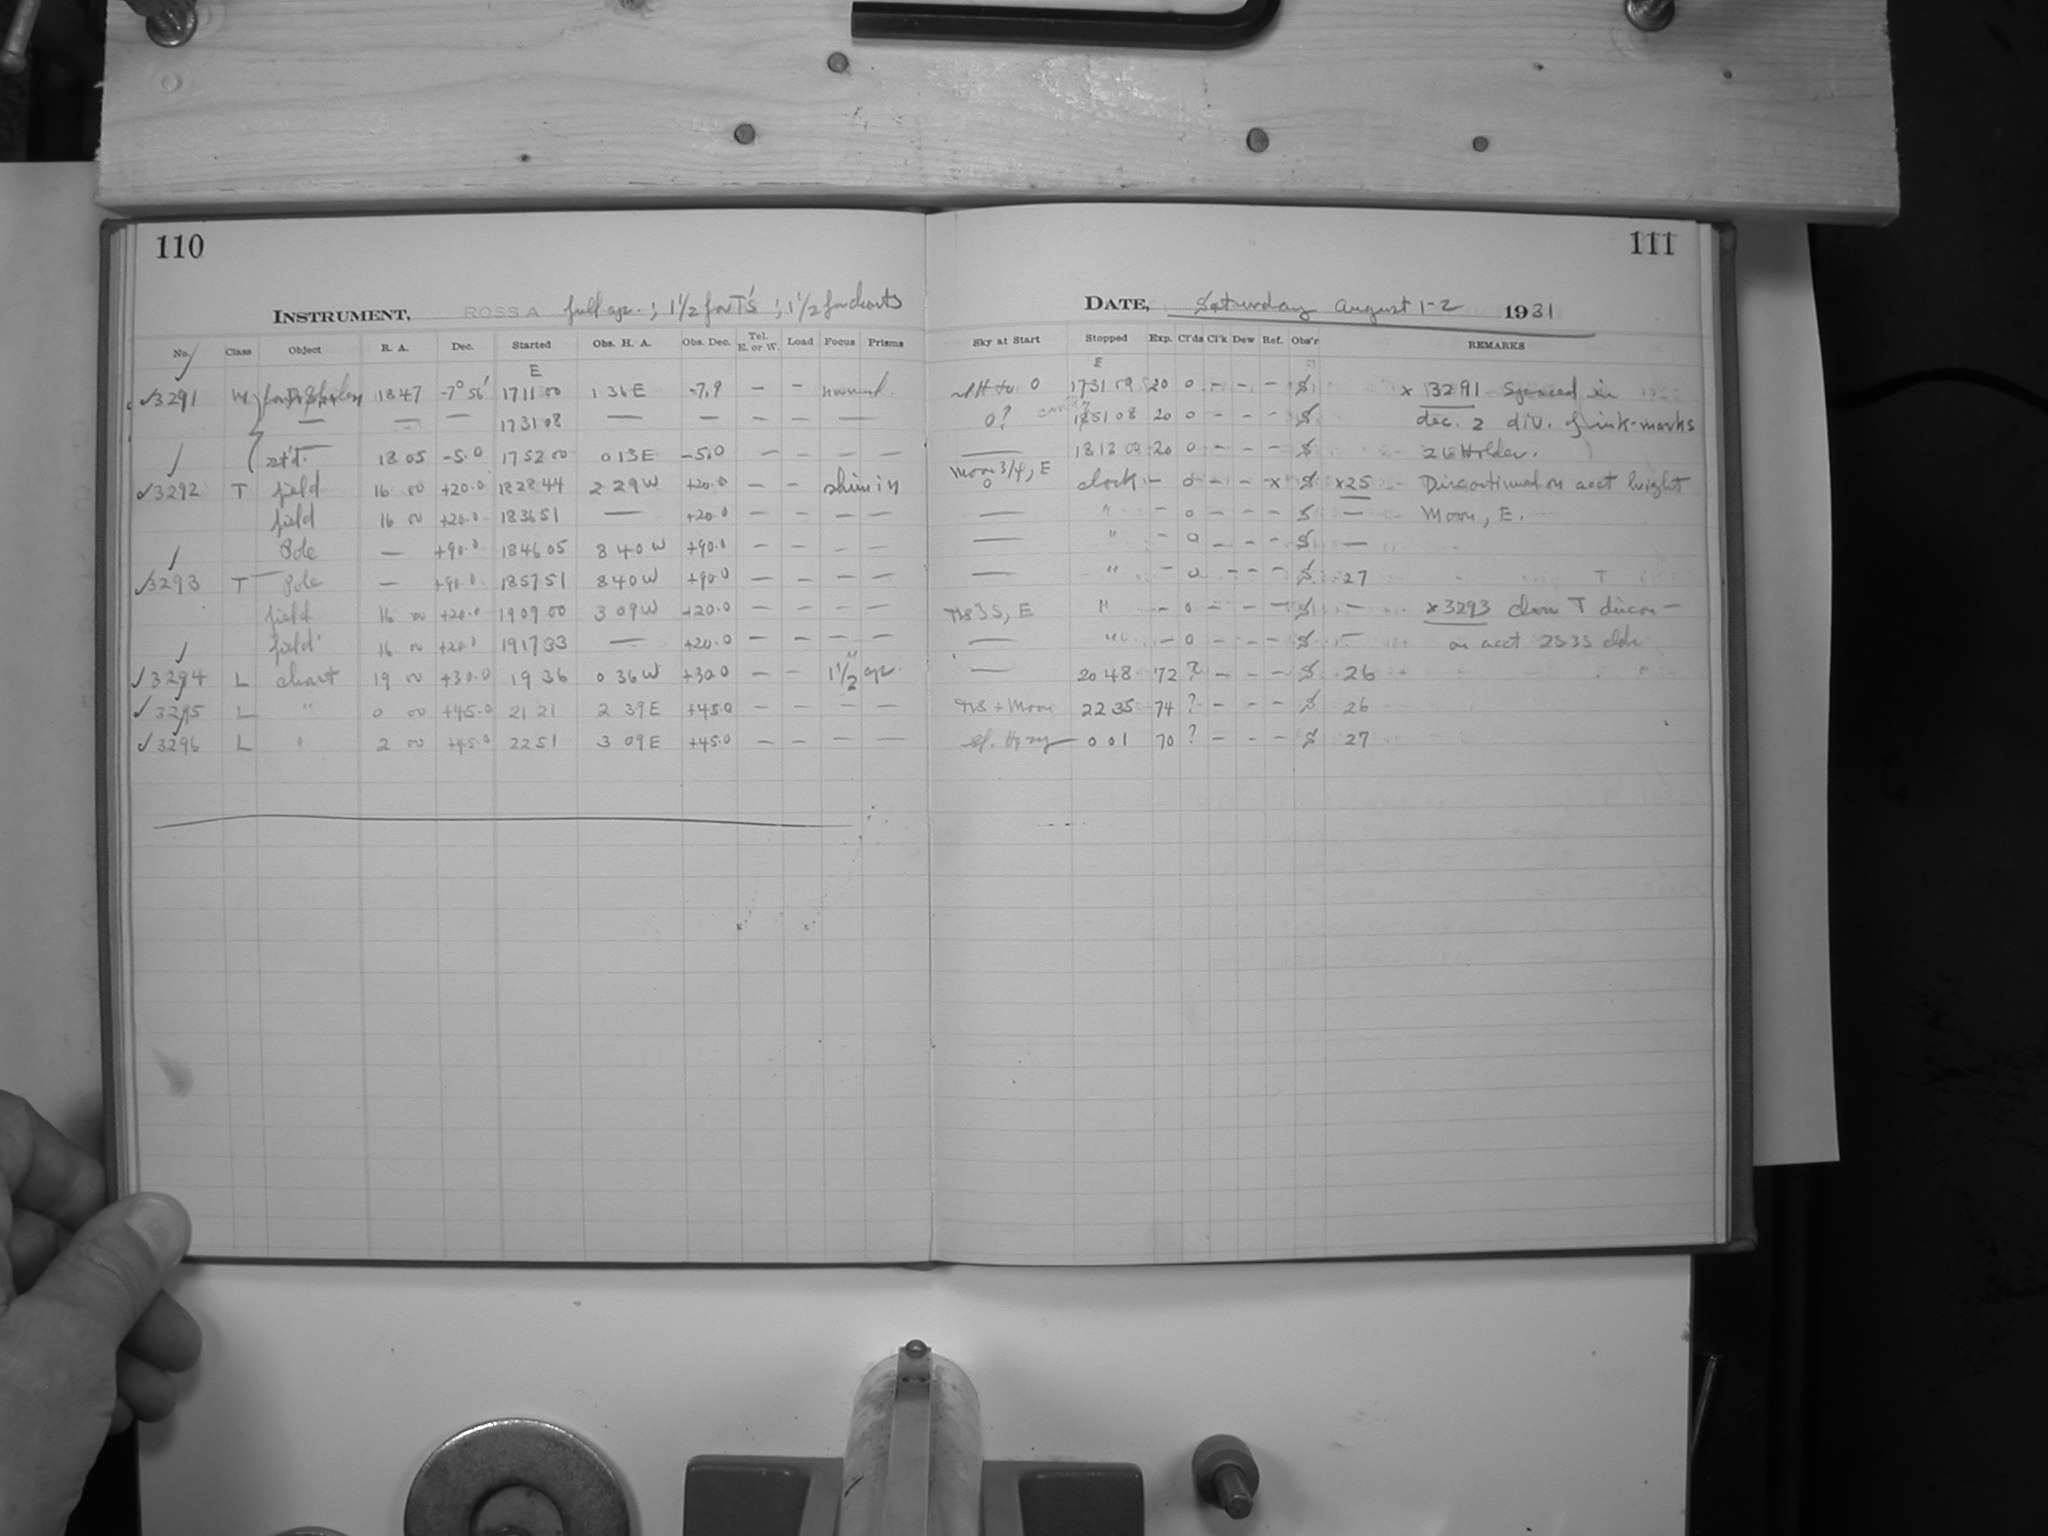 110
111
INSTRUMENT, ROSS A full ap. ; 1 1/2 for T's ; 1 1/2 for charts
DATE, Saturday August 1-2 1931
No. Class Object R. A. Dec. Started Obs. H. A. Obs. Dec. Tel. E. or W. Load Focus Prisms Sky at Start Stopped Exp. Cl'ds Cl'k Dew Ref. Obs'r REMARKS
E E
✓3291 18 47 -7° 56' 17 11 00 1 36 E -7.9 — - 0 17 31 09 20 0 - - - x 13291 Spaced in
— — — 17 31 08 — — — — — 0? 18 51 08 20 0 - - - dec. 2 div. of ink-marks
18 05 -5.0 17 52 00 0 13 E -5.0 — — — — — 18 12 00 20 0 - - - 26 Holder.
✓3292 T field 16 00 +20.0 18 28 44 2 29 W +20.0 — - shim in Moon 3/4, E 0 clock - 0 - - x x25 Discontinued on acct bright
field 16 00 +20.0 18 36 51 — +20.0 — — — — — " - 0 - - - — Moon, E.
Pole — +90.0 18 46 05 8 40 W +90.0 — — — — — " - 0 - - - —
✓3293 T Pole — +90.0 18 57 51 8 40 W +90.0 — — — — — " - 0 - - - 27
field 16 00 +20.0 19 09 00 3 09 W +20.0 — — — — S, E " - 0 - - - — x3293 T discon-
field 16 00 +20.0 19 17 33 — +20.0 — — — — — " - 0 - - - — on acct
✓3294 L chart 19 00 +30.0 19 36 0 36 W +30.0 — - 1 1/2" ap. — 20 48 72 ? - - - 26
✓3295 L " 0 00 +45.0 21 21 2 39 E +45.0 — - — — + Moon 22 35 74 ? - - - 26
✓3296 L " 2 00 +45.0 22 51 3 09 E +45.0 — — — — 0 01 70 ? - - - 27